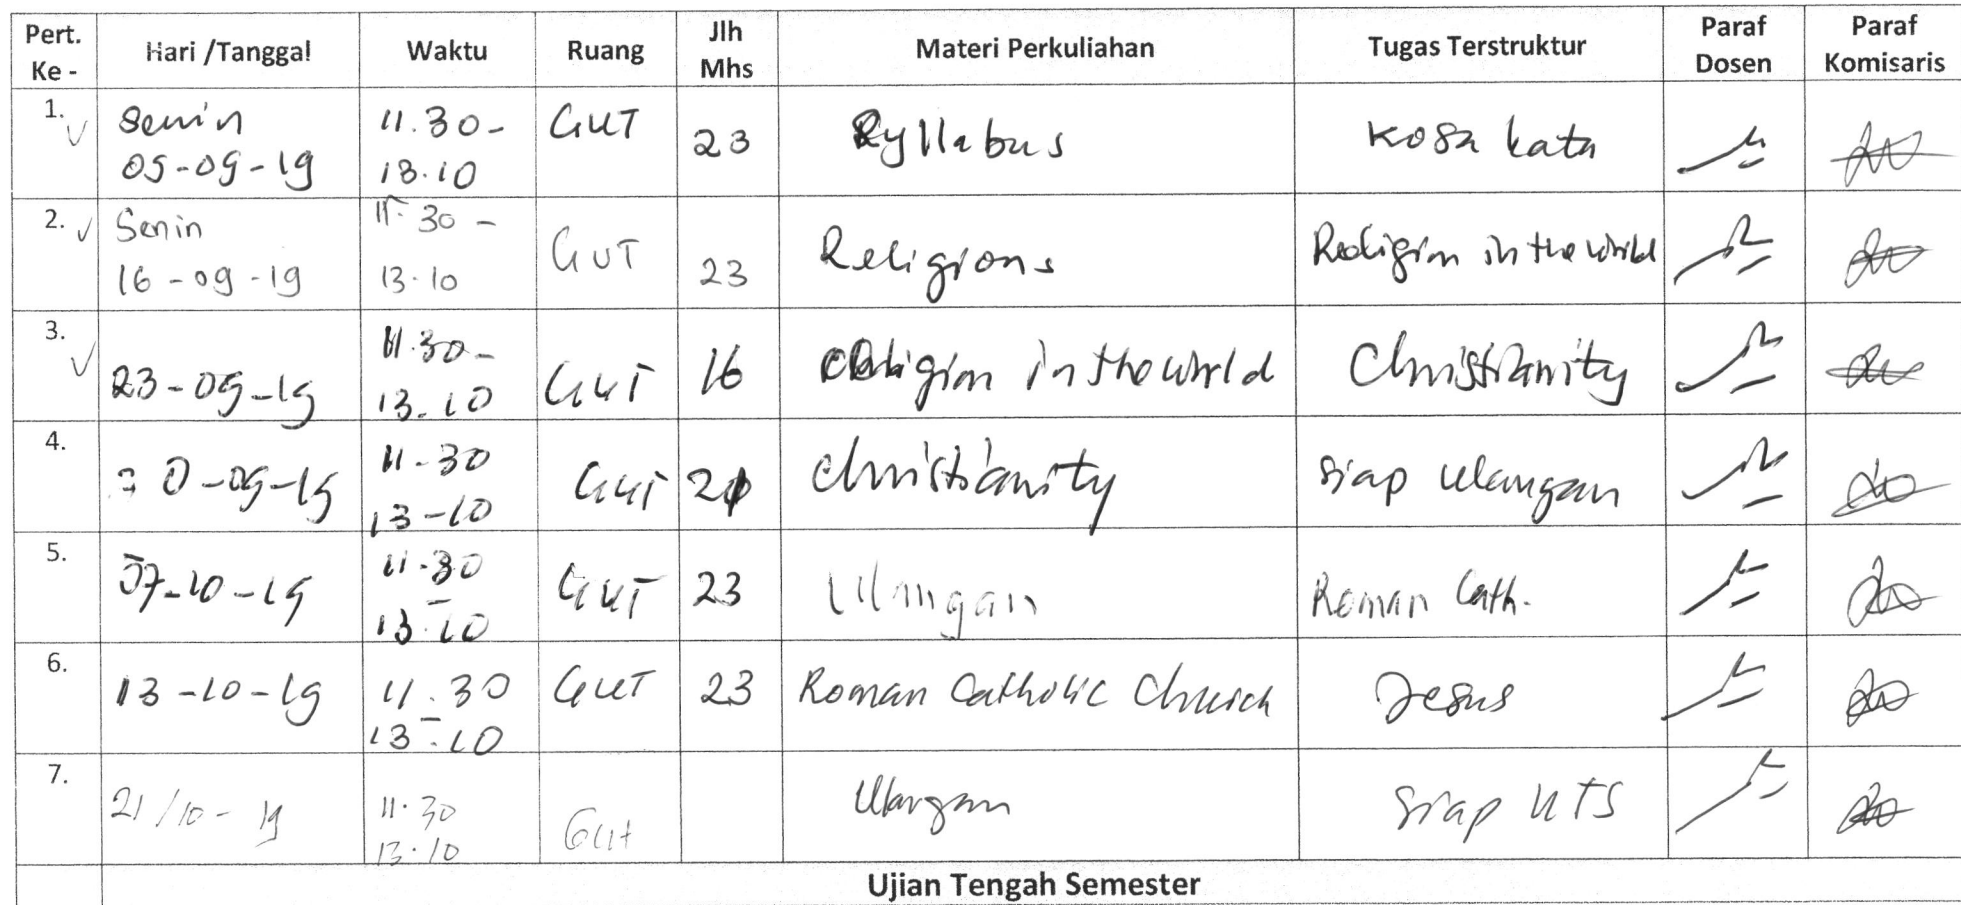 Pert. Ke - Hari /Tanggal Waktu Ruang Jlh Mhs Materi Perkuliahan Tugas Terstruktur Paraf Dosen Paraf Komisaris
1. Senin 11.30- GUT 23 Syllabus Kosa kata
09-09-19 13.10
2. Senin 11.30 - GUT 23 Religions Religion in the world
16-09-19 13.10
3. 23-09-19 11.30- GUT 16 Religion in the world Christianity
13.10
4. 30-09-19 11-30 GUT 21 Christianity Siap Ulangan
13-10
5. 07-10-19 11-30 GUT 23 Ulangan Roman Cath.
13-10
6. 13-10-19 11.30 GUT 23 Roman Catholic Church Jesus
13-10
7. 21/10-19 11.30 GUT Ulangan Siap UTS
13.10
Ujian Tengah Semester